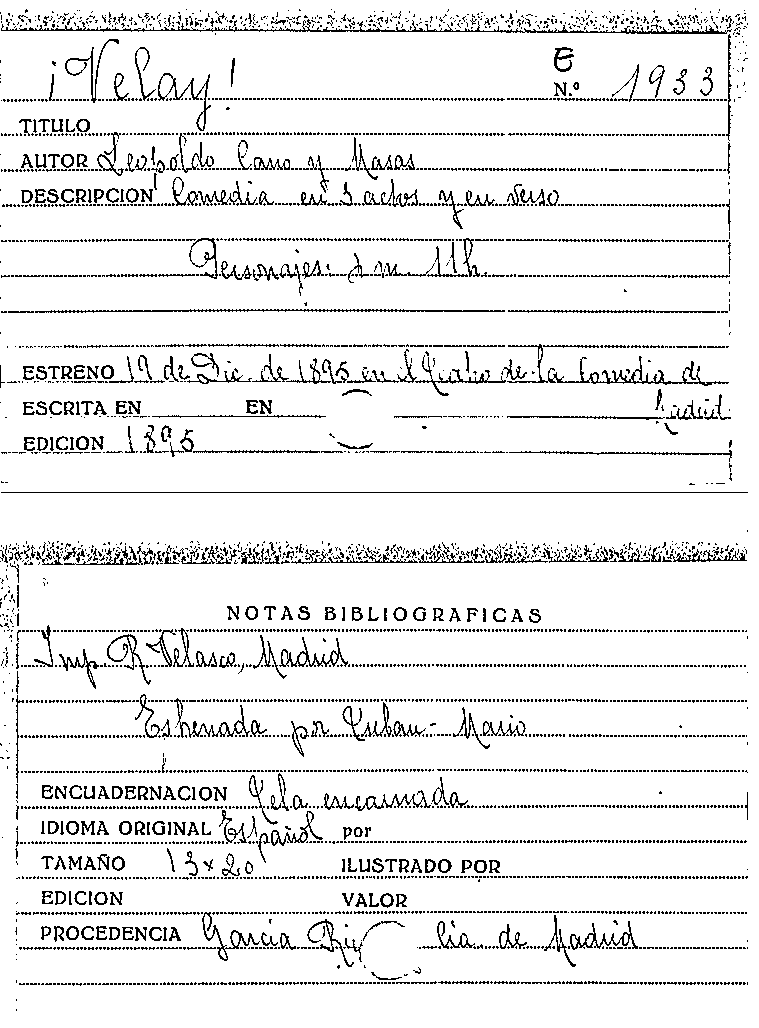 ¡Velay!
E
N.º 1933
TITULO
AUTOR Leopoldo Cano y Masas
DESCRIPCION Comedia en 3 actos y en verso
Personajes: m. 11 h.
ESTRENO 19 de Dic. de 1895 en el Teatro de la Comedia de
Madrid
ESCRITA EN EN
EDICION 1895
NOTAS BIBLIOGRAFICAS
Imp. R Velasco, Madrid
Estrenada por Tubau - Mario
ENCUADERNACION Tela encarnada
IDIOMA ORIGINAL Español por
TAMAÑO 13 x 20 ILUSTRADO POR
EDICION VALOR
PROCEDENCIA Garcia de Madrid